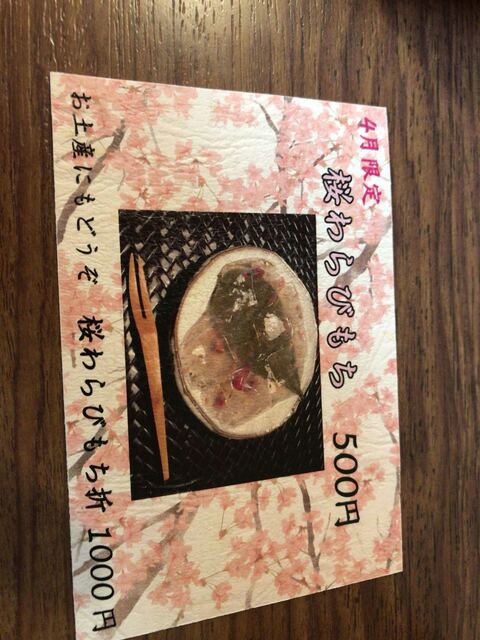 4月限定
桜わらびもち 500円
お土産にもどうぞ 桜わらびもち折 1000円